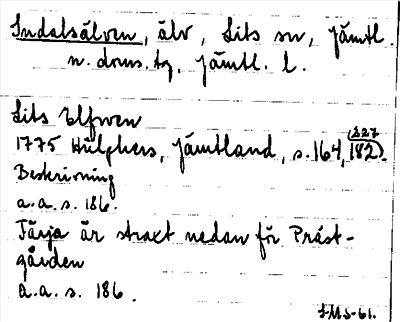 Indalsälven, älv, Lits sn, Jämtl.
n. doms. tg, Jämtl. l.
Lits Elfwen
1775 Hülphers, Jämtland, s. 164, 182). 227
Beskrivning
a.a. s. 186.
Färja är straxt nedan för Präst-
gården
a.a. s. 186.
LMS-61.